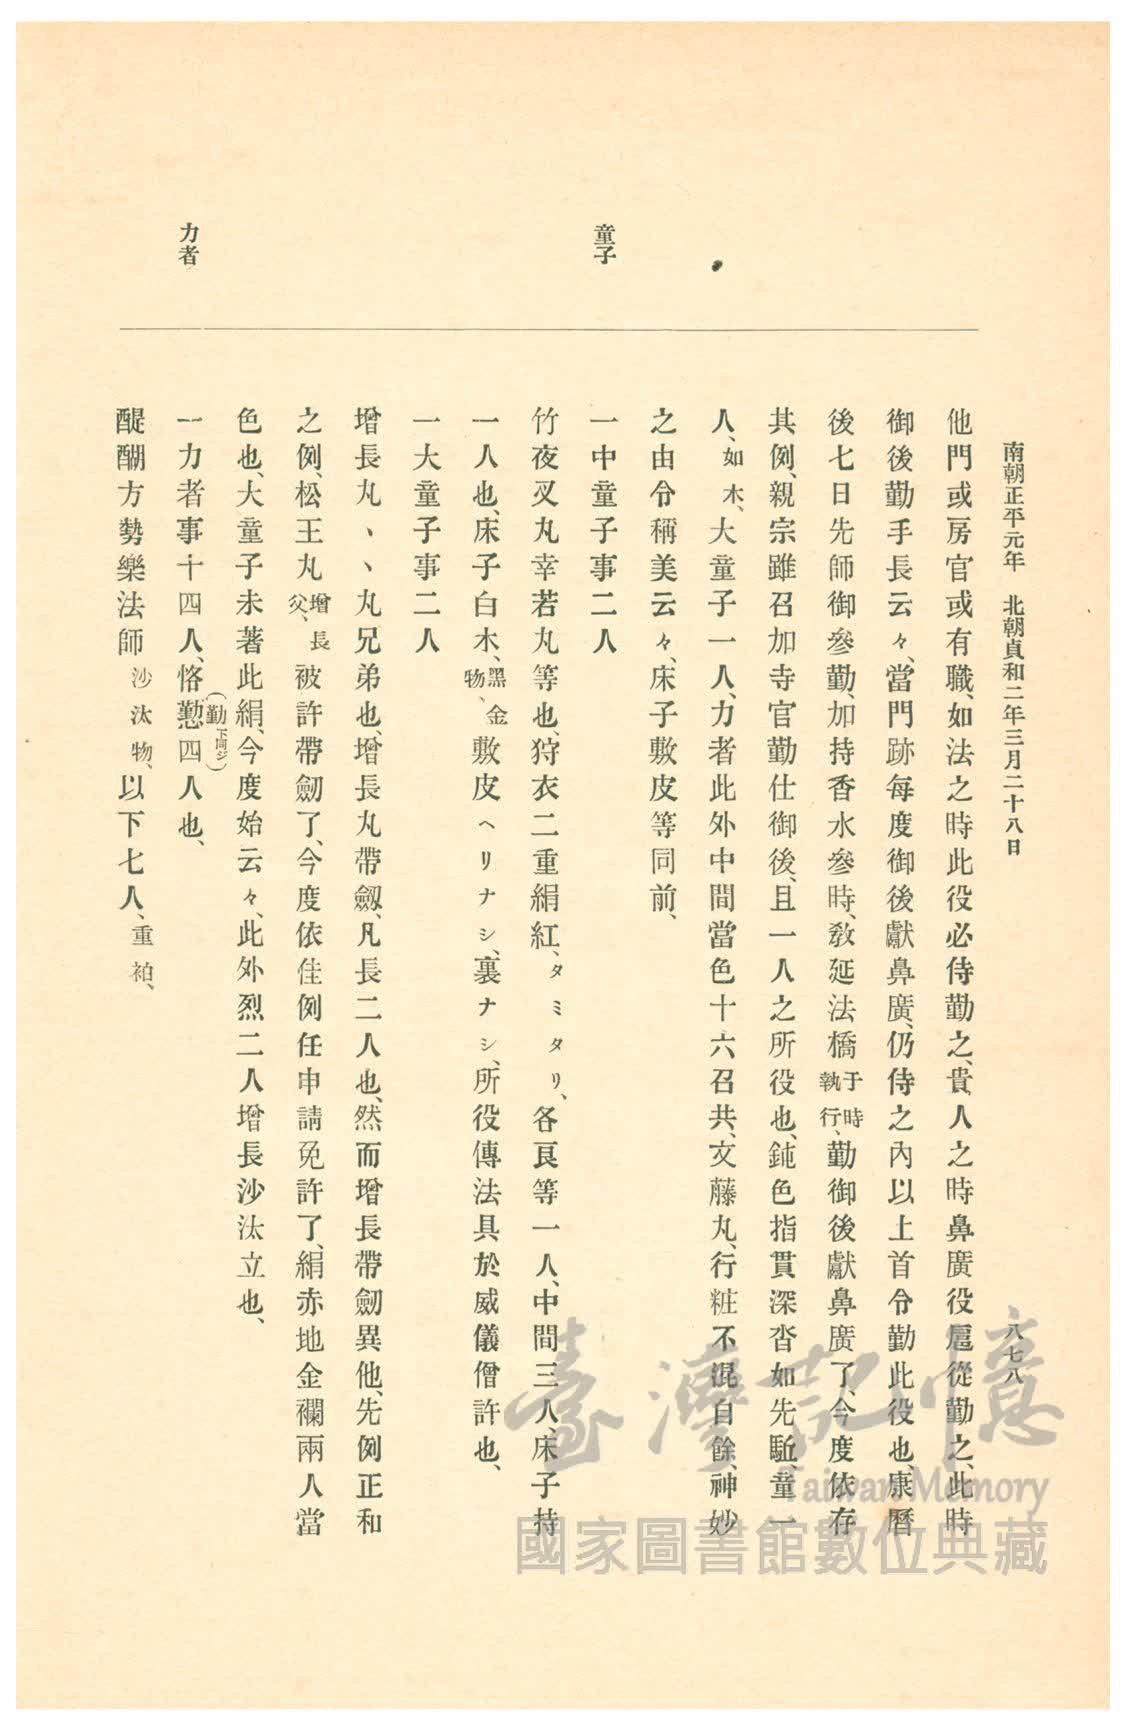 南朝正平元年　北朝貞和二年三月二十八日
八七八
他門或房官或有職、如法之時此役必侍勤之、貴人之時鼻廣役扈從勤之、此時
御後勤手長云々、當門跡每度御後獻鼻廣、仍侍之內以上首令勤此役也、康曆
後七日先師御參勤、加持香水參時、敎延法橋于時執行、勤御後獻鼻廣了、今度依存
其例、親宗雖召加寺官勤仕御後、且一人之所役也、鈍色指貫深沓如先駈、童一
人、如木、大童子一人、力者此外中間當色十六召共、文藤丸、行粧不混自餘、神妙
之由令稱美云々、床子敷皮等同前、
童子
一中童子事二人
竹夜叉丸幸若丸等也、狩衣二重絹紅、タミタリ、各良等一人、中間三人、床子持
一人也、床子白木、黑金物、敷皮ヘリナシ、裏ナシ、所役傳法具於威儀僧許也、
一大童子事二人
增長丸、、丸兄弟也、增長丸帶劔、凡長二人也、然而增長帶劒異他、先例正和
之例、松王丸增長父、被許帶劒了、今度依佳例任申請免許了、絹赤地金襴兩人當
色也、大童子未著此絹、今度始云々、此外烈二人增長沙汰立也、
力者
一力者事十四人、恪懃(勤下同ジ)四人也、
醍醐方勢樂法師沙汰物、以下七人、重袙、
臺灣記憶
Taiwan Memory
國家圖書館數位典藏